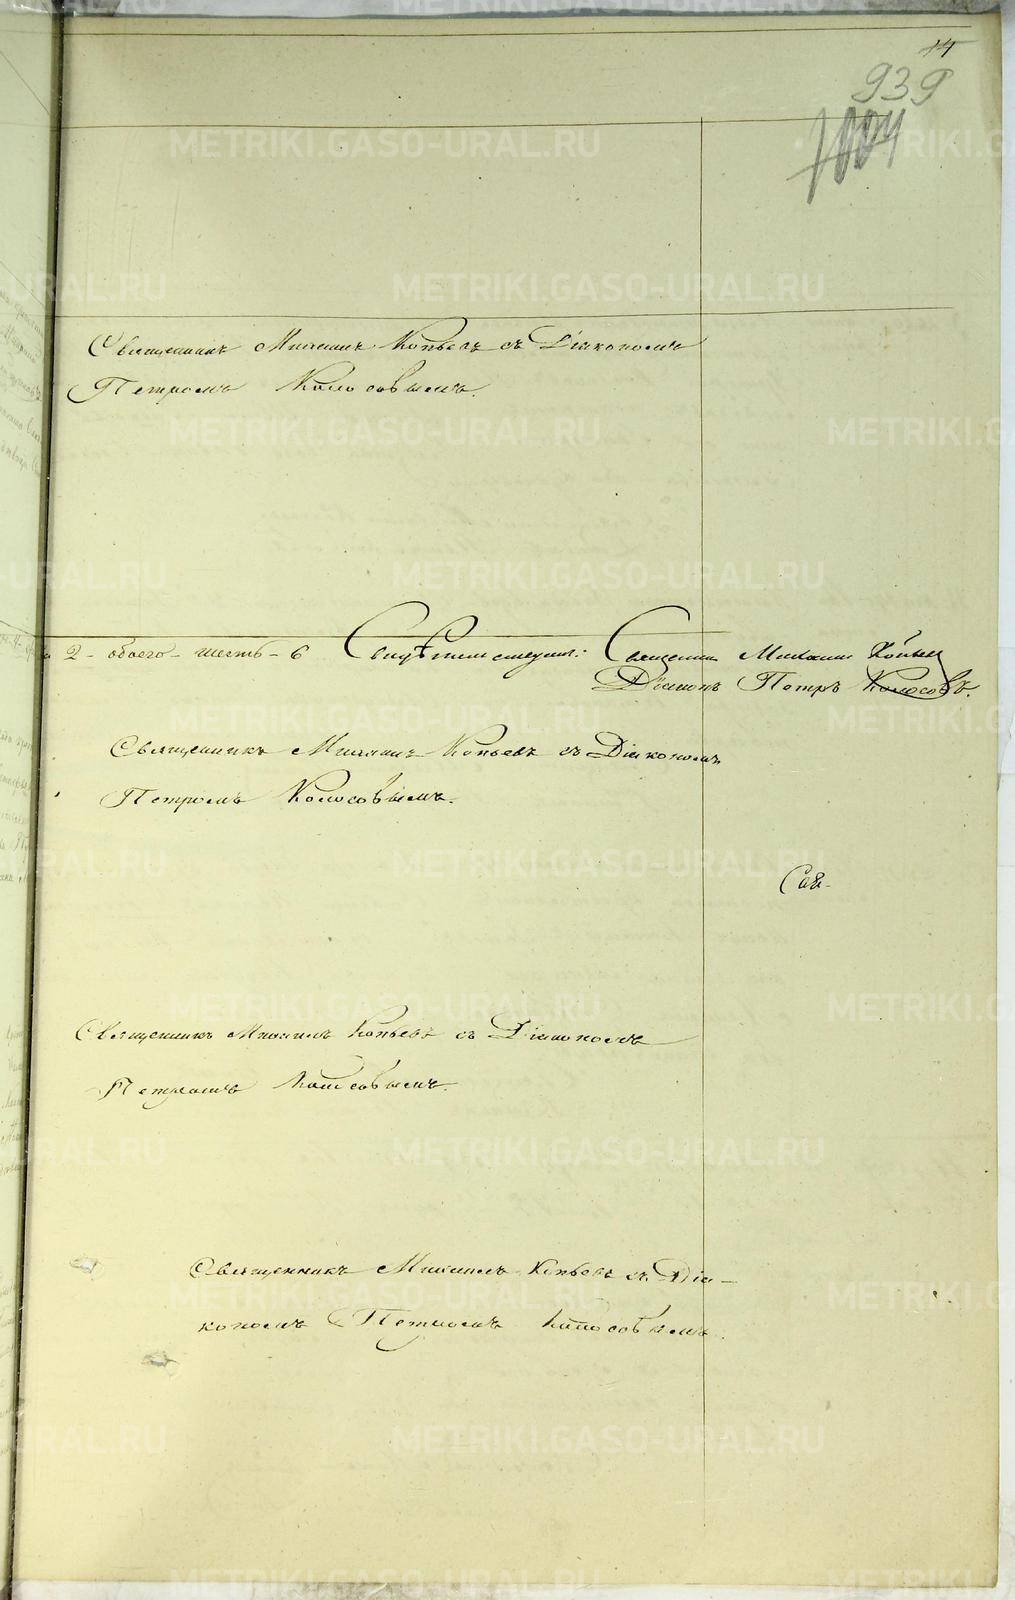 14
939
1004
Священникъ Михаилъ Копьевъ съ Діакономъ
Петромъ Колосовымъ.
2 - обоего - шесть - 6 Свидѣтельствуютъ: Священникъ Михаилъ Копьевъ
Діаконъ Петръ Колосовъ.
Священникъ Михаилъ Копьевъ съ Діакономъ
Петромъ Колосовымъ.
Священникъ Михаилъ Копьевъ съ Діакономъ
Петромъ Колосовымъ.
Священникъ Михаилъ Копьевъ съ Діа-
кономъ Петромъ Колосовымъ.
METRIKI.GASO-URAL.RU